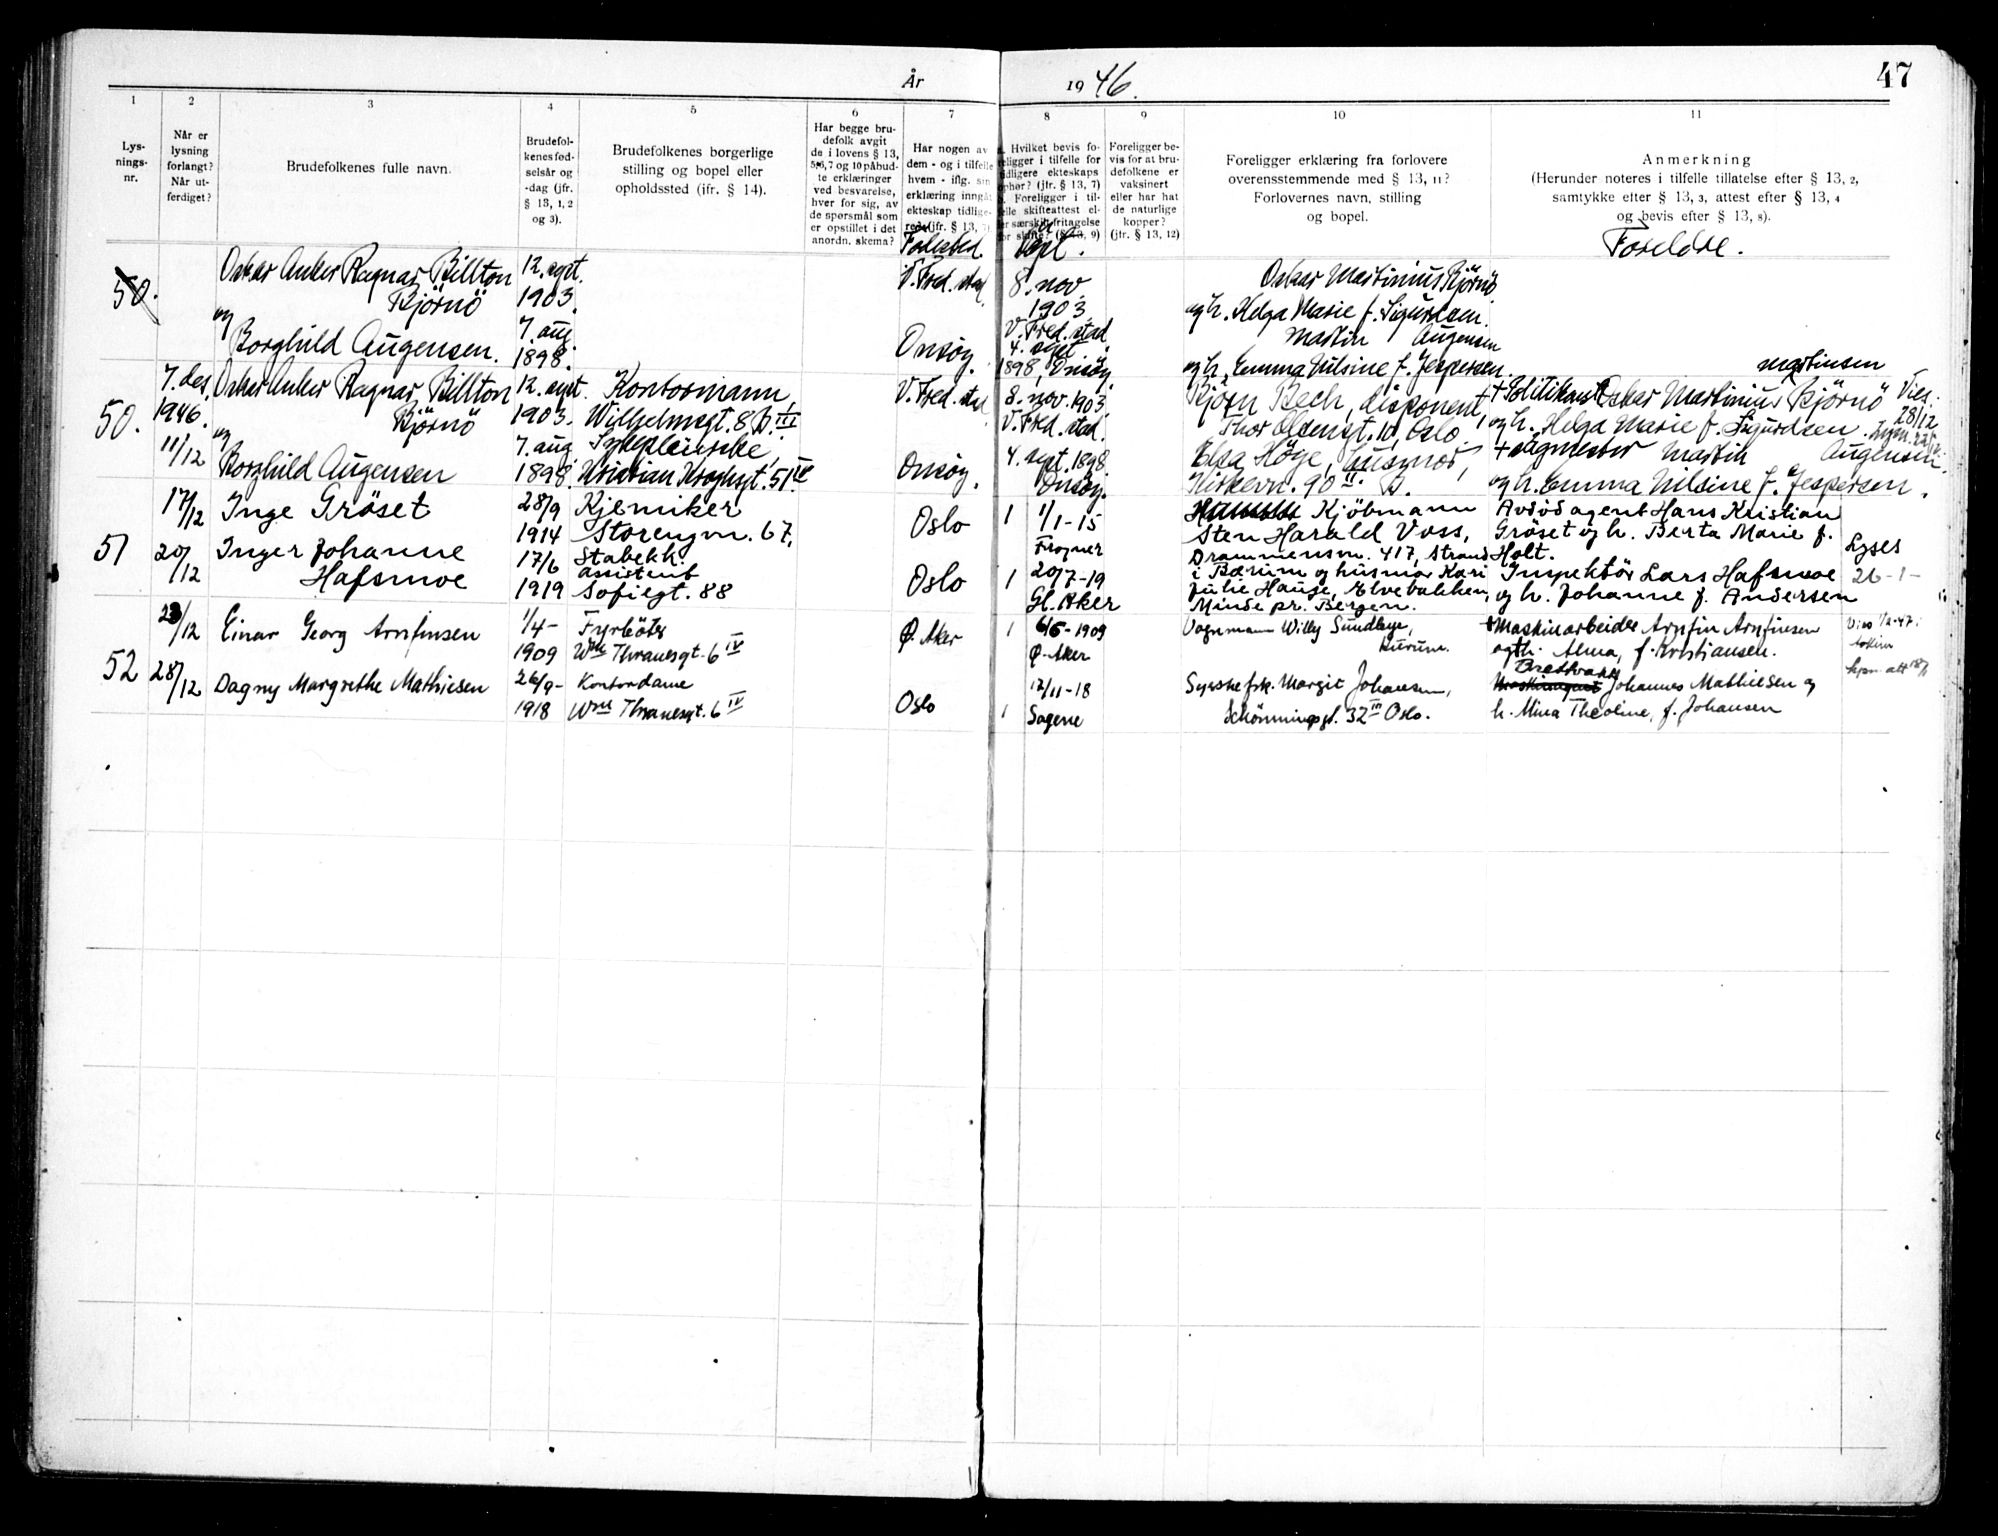 År 1946.
47
1
2
3
4
5
6
7
8
9
10
11
Lys-
nings-
nr.
Når er
lysning
forlangt?
Når ut-
ferdiget?
Brudefolkenes fulle navn.
Brudefol-
kenes fød-
selsår og
-dag (jfr.
§ 13, 1, 2
og 3).
Brudefolkenes borgerlige
stilling og bopel eller
opholdssted (ifr. § 14).
Har begge bru-
defolk avgit
de i lovens § 13,
5, 6, 7 og 10 påbud-
te erklæringer
ved besvarelse,
hver for sig, av
de spørsmål som
er opstillet i det
anordn. skema?
Har nogen av
dem - og i tilfelle
hvem - iflg. sin
erklæring inngåt
ekteskap tidlige-
re? (jfr. § 13, 7)
Fødested.
Hvilket bevis fo-
religger i tilfelle for
tidligere ekteskaps
ophør? (jfr. § 13, 7)
Foreligger i til-
felle skifteattest el-
ler særskilt fritagelse
for skifte? (§ 13, 9)
Foreligger be-
vis for at bru-
defolkene er
vaksinert
eller har hat
de naturlige
kopper?
(jfr. § 13, 12)
Foreligger erklæring fra forlovere
overensstemmende med § 13, 11?
Forlovernes navn, stilling
og bopel.
Anmerkning
(Herunder noteres i tilfelle tillatelse efter § 13, 2,
samtykke efter § 13, 3, attest efter § 13, 4
og bevis efter § 13, 8).
Foreldre.
50.
Oskar Anker Ragnar Billton
Bjørnö
og
Borghild Augensen.
12. sept.
1903.
7. aug.
1898.
V. Fred. stad
Onsøy.
8. nov.
1903
V. Fred. stad
4. sept.
1898, Onsøy.
Oskar Martinius Bjørnö
og h. Helga Marie f. Sigurdsen.
Martin Augensen
og h. Emma Nilsine f. Jespersen.
50.
7. des.
1946.
11/12
Oskar Anker Ragnar Billton
Bjørnö
og
Borghild Augensen
12. sept.
1903.
7. aug.
1898.
Kontormann,
Wilhelmsgt. 8 b. III
Sykepleierske,
Kristian Kroghsgt. 51 IV
V. Fred. stad
Onsøy.
8. nov. 1903
V. Fred. stad.
4. sept. 1898.
Onsøy.
Bjørn Bech, disponent,
Thor Olsensgt. 10, Oslo
Elsa Höye, husmor,
Kirkevn. 90 II B.
Martinsen
+ Politikonst. Oskar Martinius Bjørnö
og h. Helga Marie f. Sigurdsen.
+ Sagmester Martin Augensen
og h. Emma Nilsine f. Jespersen.
Vies.
28/12
51
17/12
20/12
Inge Gröset
Inger Johanne
Hafsmoe
28/9
1914
17/6
1919
Kjemiker
Storengvn. 67,
Stabekk.
assistent
Sofiegt. 88
Oslo
Oslo
1
1
1/1-15
Frogner
20/7-19
Gl. Aker
Kjöbmann
Sten Harald Voss,
Drammensvn. 417, Strand
i Bærum og husmor Kari
Julie Hauge, Elvebakken,
Minde pr. Bergen.
Avdöd agent Hans Kristian
Gröset og h. Berta Marie f.
Holt.
Inspektör Lars Hafsmoe
og h. Johanne f. Andersen
Lyses
26-1-
52
23/12
28/12
Einar Georg Arnfinsen
Dagny Margrethe Mathiesen
1/4-
1909
26/9-
1918
Fyrböter
Wm Thranesgt. 6 IV
Kontordame
Wm Thranesgt. 6 IV
Ø. Aker
Oslo
1
1
6/6-1909
Ø. Aker
12/11-18
Sagene
Vognmann Willy Sundbye,
Syerske frk. Margit Johansen,
Schönningsgt. 32 III Oslo.
+ Maskinarbeider Arnfin Arnfinsen
og h. Alma, f. Kristiansen.
Brødbaker
Johannes Mathiesen og
h. Mina Theoline, f. Johansen
Vies 1/2-47.